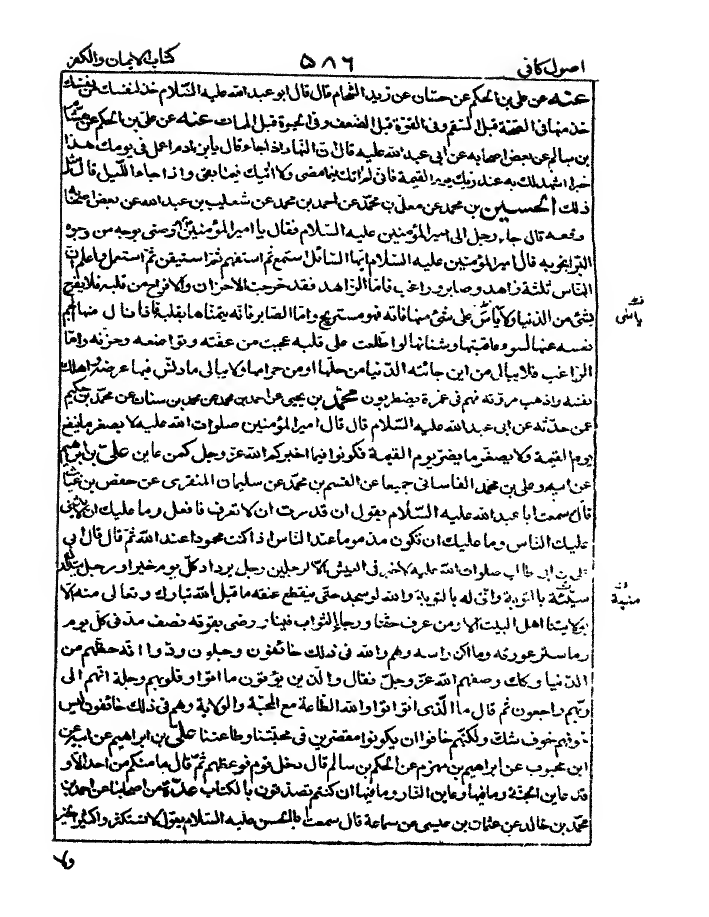 اصول كافى ٥٨٦ كتاب الايمان والكفر
عنه عن على بن الحكم عن حسان عن زيد الشحام قال قال ابو عبد الله عليه السّلام خذ لنفسك من نفسك
خذ منها فى الصحة قبل السقم وفى القوة قبل الضعف وفى الحيوة قبل الممات عنه عن على بن الحكم عن هشام
بن سالم عن بعض اصحابه عن ابى عبد الله عليه قال ان النهار اذا جاء قال يا بن ادم اعمل فى يومك هذا
خيرا اشهد لك به عند ربك يوم القيمة فانى لم اتك فيما مضى ولا اتيك فيما بقى واذا جاء الليل قال مثل
ذلك الحسين بن محمد عن معلى بن محمّد عن احمد بن محمد عن شعيب بن عبد الله عن بعض اصحابنا
رفعه قال جاء رجل الى امير المؤمنين عليه السّلام فقال يا امير المؤمنين اوصنى بوجه من وجوه
البر انجو به قال امير المؤمنين عليه السّلام ايها السائل استمع ثم استفهم ثم استيقن ثم استعمل واعلم ان
الناس ثلثة زاهد وصابر وراغب فامّا الزاهد فقد خرجت الاحزان والافراح من قلبه فلا يفرح
بشئ من الدنيا ولا يأس على شئ منها فاته فهو مستريح وامّا الصابر فانه يتمنّاها بقلبه فاذا نال منها الجم
نفسه عنها لسوء عاقبتها وشنائتها لو اطّلعت على قلبه عجبت من عفّته وتواضعه وحزمه وامّا
الراغب فلا يبالى من اين جائته الدّنيا من حلّها او من حرامها ولا يبالى ما دنّس فيها عرضه واهلك
نفسه واذهب مروّته فهم فى غمرة يضطربون محمّد بن يحيى عن احمد بن محمد عن محمد بن سنان عن محمّد بن حكيم
عن حدّثه عن ابى عبد الله عليه السّلام قال قال امير المؤمنين صلوات الله عليه لا يصغر ما ينفع
يوم القيمة ولا يصغر ما يضرّ يوم القيمة فكونوا فيما اخبركم الله عزّ وجل كمن عاين علىّ بن ابراهيم
عن ابيه وعلى بن محمد القاسانى جميعا عن القسم بن محمّد عن سليمان المنقرى عن حفص بن غياث
قال سمعت ابا عبد الله عليه السّلام يقول ان قدرت ان لا تعرف فافعل وما عليك ان لا يثنى
عليك الناس وما عليك ان تكون مذموما عند الناس اذا كنت محمودا عند الله ثمّ قال قال ابى
على بن ابى طالب صلوات الله عليه لا خير فى العيش الا لرجلين رجل يزداد كلّ يوم خيرا ورجل يتدارك
بالتوبة وانّى له بالتوبة والله لو سجد حتى ينقطع عنقه ما قبل الله تبارك وتعالى منه الا
بولايتنا اهل البيت الا ومن عرف حقّنا ورجا الثواب فينا ورضى بقوته نصف مدّ فى كلّ يوم
وما ستر عورته وما اكنّ راسه وهم والله فى ذلك خائفون وجلون ودّوا انّه حظّهم من
الدّنيا وكذلك وصفهم الله عزّ وجلّ فقال والّذين يؤتون ما اتوا وقلوبهم وجلة انّهم الى
ربّهم راجعون ثم قال ما الّذى اتوا اتوا والله الطّاعة مع المحبّة والولاية وهم فى ذلك خائفون ليس
خوفهم خوف شكّ ولكنّهم خافوا ان يكونوا مقصّرين فى محبّتنا وطاعتنا علىّ بن ابراهيم عن ابيه عن
ابن محبوب عن ابراهيم بن مهزم عن الحكم بن سالم قال دخل قوم فوعظهم ثمّ قال ما منكم من احد الاّ و
قد عاين الجنّة وما فيها وعاين النّار وما فيها ان كنتم تصدّقون بالكتاب عدّة من اصحابنا عن احمد بن
محمّد بن خالد عن عثمان بن عيسى عن سماعة قال سمعت ابا الحسن عليه السّلام يقول لا تستكثروا كثير الخير
ولا